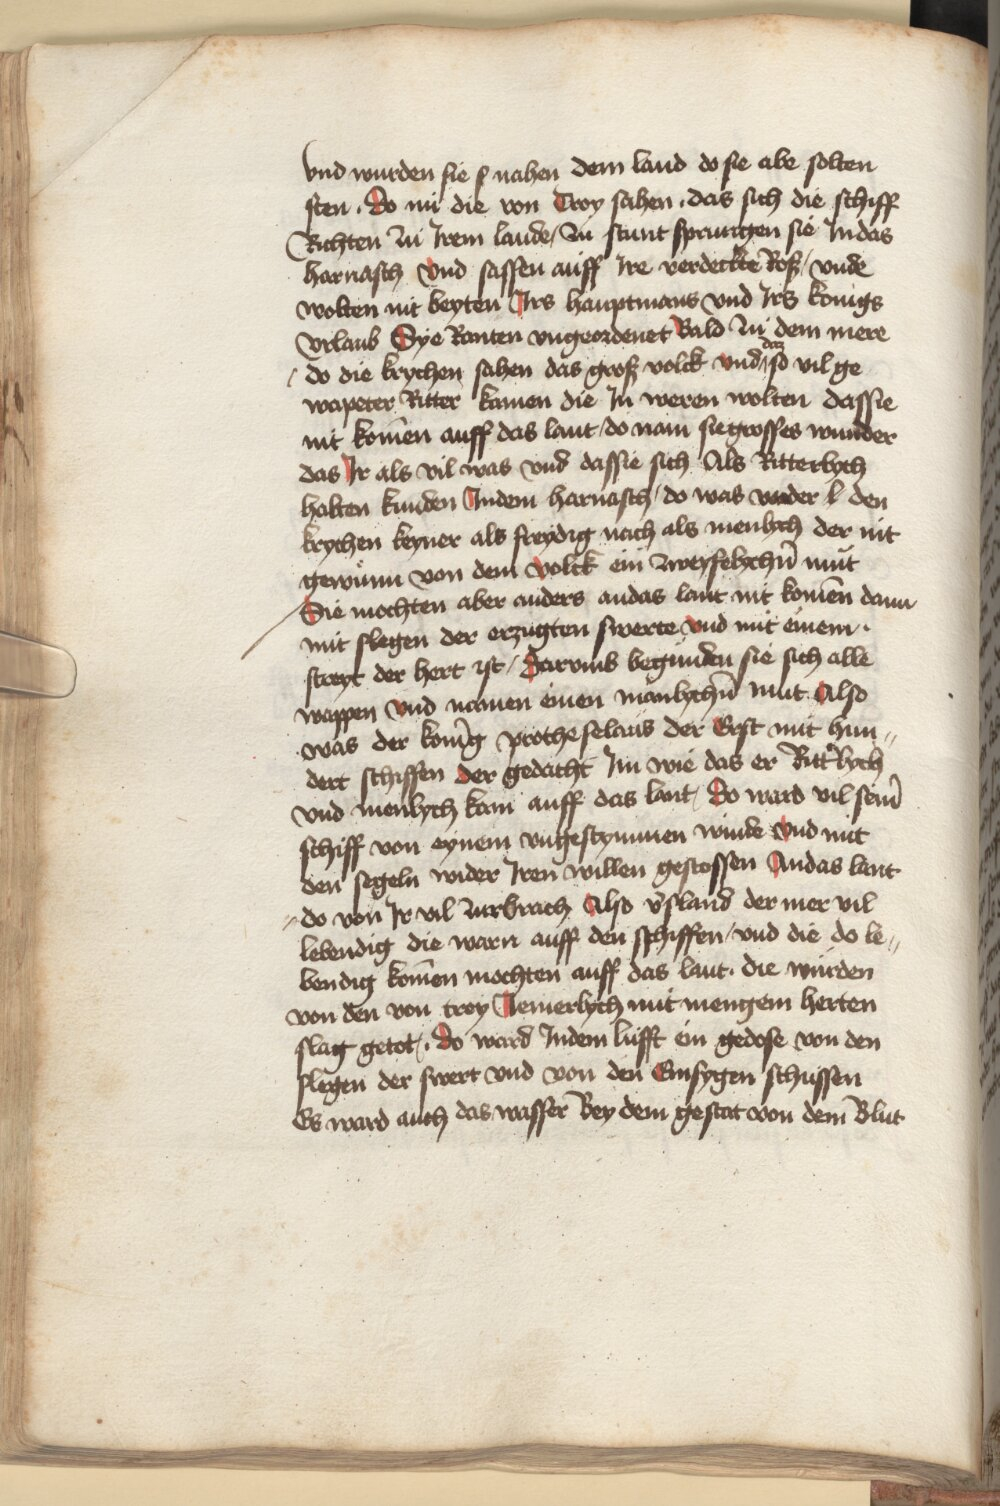 vnd wurden sie s nahen dem land do sie abe solten
sten . Do nü die von Troy sahen . das sich die schiff
Richten zü Irem lande / zü stunt sprungen sie Indas
harnasch Vnd sassen auff Ire verdeckte Roß / vnde
wolten nit beyten Irs hauptmans vnd Irs konigs
vrlaub Sye Ranten vngeordenet Bald zü dem mere
/ do die krychen sahen das groß volck vnd das so vil ge
wapeter Ritter kamen die In weren wolten dassie
nit komen auff das lant / do nam sie grosses wunder
das Ir als vil was vnd dassie sich Als Ritterlych
halten kunden Indem harnasch / do was vnder den
krychen keyner als freydig nach als menlych der nit
gewünn von dem volck ein zweyfelychen müt
Sie mochten aber anders andas lant nit komen dann
mit slegen der erzugten swerte vnd mit einem .
streyt der hert ist / Darvmb begunden sie sich alle
wappen vnd namen einen manlychen mut Also
was der konig protheselaus der Erst mit hun „
dert schiffen der gedacht Im wie das er Ritterlych
vnd menlych kam auff das lant / Do ward vil seiner
schiff von eynem vngestymmen winde Vnd mit
den segeln wider Iren willen gestossen Andas lant
„ do von Ir vil zurbrach Also v̉sland der mer vil
lebendig die warn auff den schiffen / vnd die do le „
bendig komen mochten auff das lant . die würden
von den von troy Iemerlych mit mengem herten
slag getot / . Do ward Indem lüfft ein gedose von den
slegen der swert vnd von den Emsygen schussen
Es ward auch das wasser Bey dem gestat von dem Blut